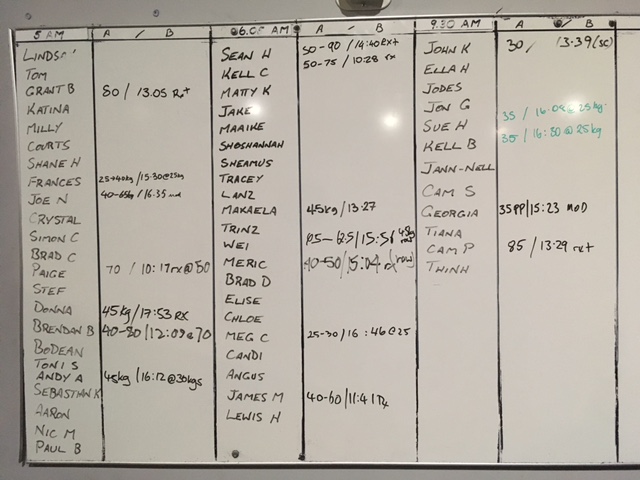 5 AM A / B
LINDS
TOM
GRANT B 80 / 13.05 Rx+
KATINA
MILLY
COURTS
SHANE H
FRANCES 25+40kg/15:30@25kg
JOE N 40-65kg/16.35 md
CRYSTAL
SIMON C
BRAD C
PAIGE 70 / 10:17rx@50
STEF
DONNA 45kg/17:53 RX
BRENDAN B 40-80/12:09@70
BODEAN
TONI S
ANDY A 45kg/16:12@30kgs
SEBASTIAN K
AARON
NIC M
PAUL B
6.05 AM A / B
SEAN H 50-90/14:40 Rx+
50-75/10:28 rx
KELL C
MATTY K
JAKE
MAAIKE
SHOSHANNAH
SHEAMUS
TRACEY
LANZ
MAKAELA 45kg/13:27
TRINZ
WEI
MERIC 40-50/15:04 rx (row)
BRAD D
ELISE
CHLOE
MEG C 25-30/16:46@25
CANDI
ANGUS
JAMES M 40-60/11:41Rx
LEWIS H
9.30 AM A / B
JOHN K 30/ 13.39(sc)
ELLA H
JODES
JON G
35/16:08@25kg.
SUE H 35/16:30@25kg
KELL B
JANN-NELL
CAM S
GEORGIA 35PP/15:23 MOD
TIANA
CAM P 85/13:29 rx+
THINH